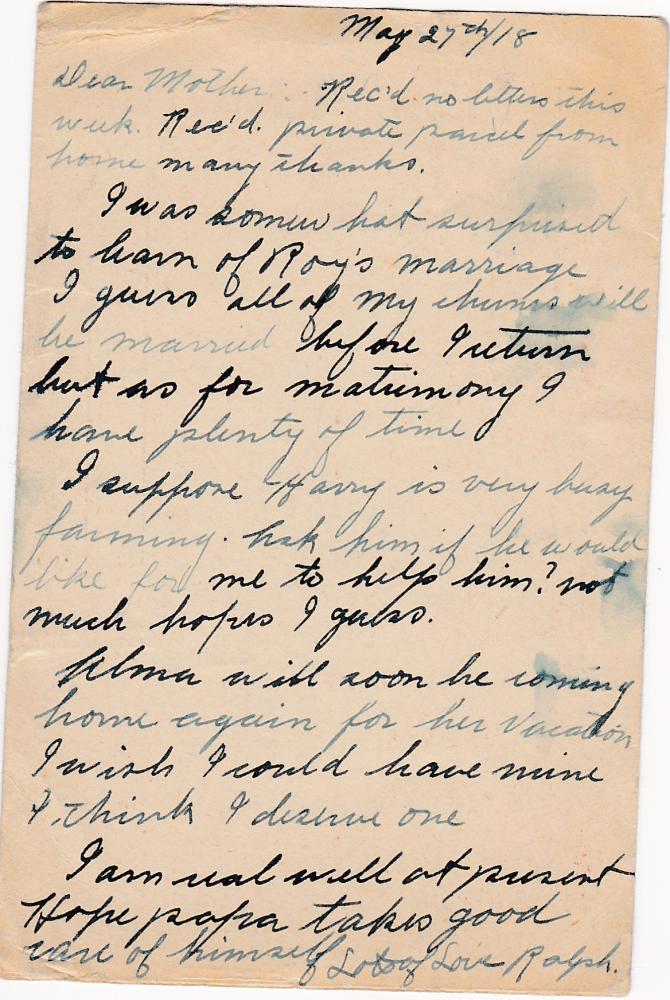 May 27th/18
Dear Mother:. Rec'd no letters this
week. Rec'd. private parcel from
home many thanks.
I was somewhat surprised
to learn of Roy's marriage
I guess all of my chums will
be married before I return
but as for matrimony I
have plenty of time
I suppose Harry is very busy
farming. Ask him if he would
like for me to help him? not
much hopes I guess.
Alma will soon be coming
home again for her vacation
I wish I could have mine
I think I deserve one
I am real well at present
Hope papa takes good
care of himself Lots of Love Ralph.